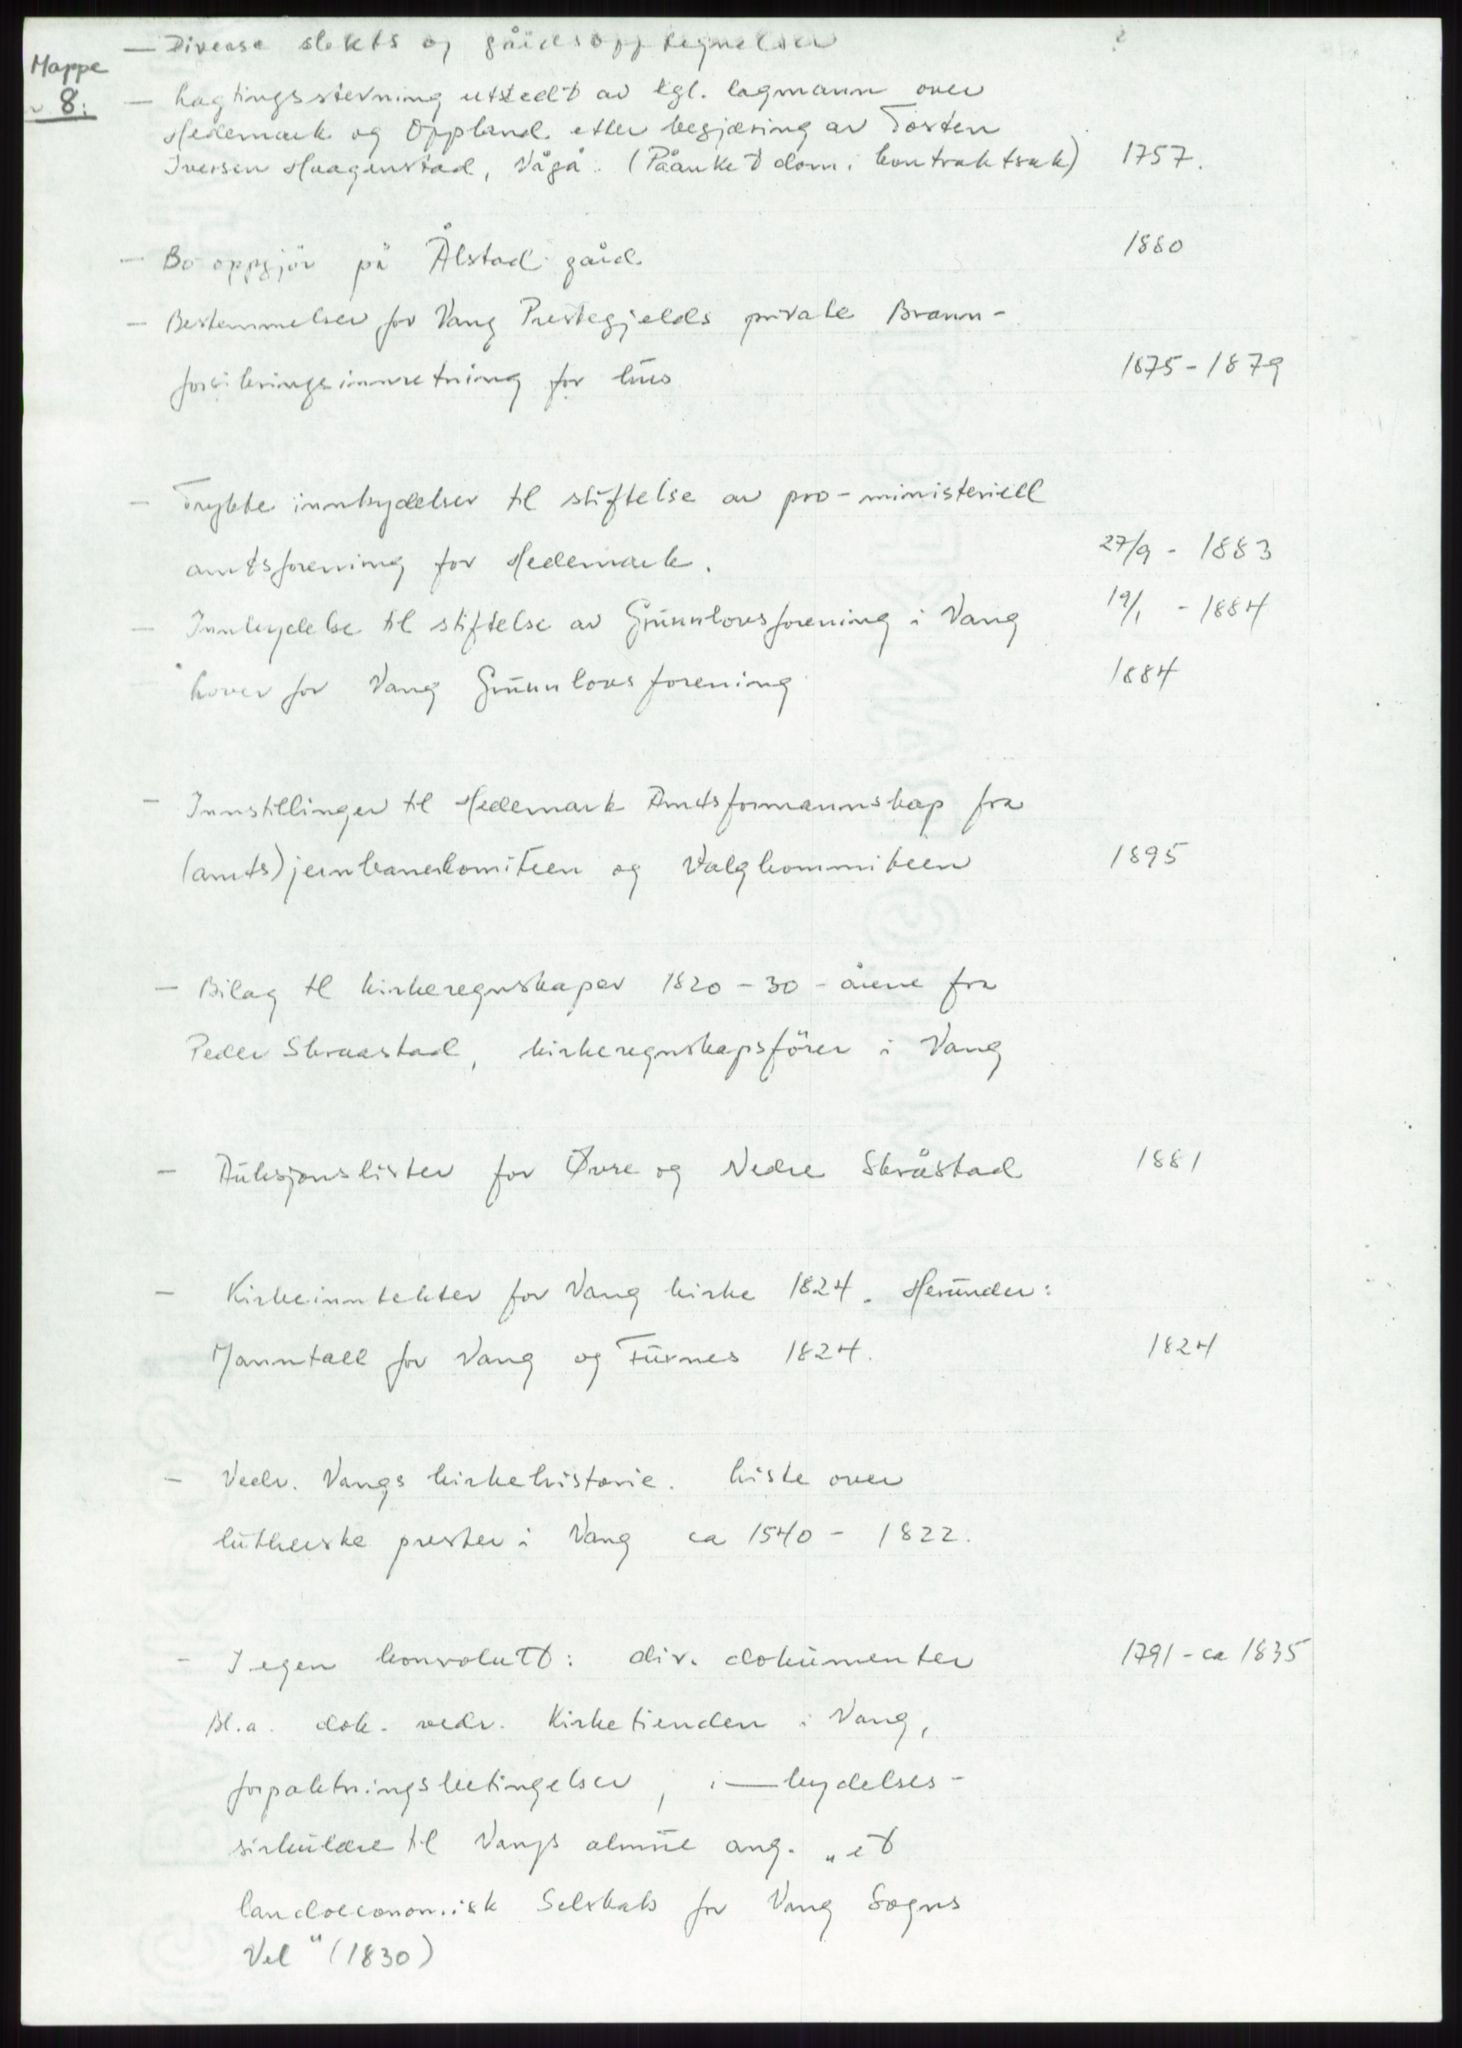 — Diverse slekts og gårdsopptegnelser ?
Mappe
8:
— Lagtingsstevning utstedt av kgl. lagmann over
Hedemark og Oppland etter begjæring av Tosten
Iversen Haagenstad, Vågå. (Påanket dom i kontraktsak) 1757.
— Bo oppgjör på Ålstad gård 1880
— Bestemmelser for Vang Prestegjelds private Brann-
forsikringsinnretning for løsøre 1875-1879
— Trykte innbydelser til stiftelse av pro-ministeriell
amtsforening for Hedemark. 27/9 - 1883
— Innbydelse til stiftelse av Grunnlovsforening i Vang 19/1 - 1884
Lover for Vang Grunnlovsforening 1884
— Innstillinger til Hedemark Amtsformannskap fra
(amts)jernbanekomiteen og Valgkommiteen 1895
— Bilag til kirkeregnskaper 1820-30-årene fra
Peder Skraastad, kirkeregnskapsförer i Vang
— Auksjonslister for Øvre og Nedre Skråstad 1881
— Kirkeinntekter for Vang kirke 1824. Herunder:
Manntall for Vang og Furnes 1824. 1824
— Vedr. Vangs kirkehistorie. Liste over
lutherske prester i Vang ca 1540 - 1822.
— I egen konvolutt: div. dokumenter 1791 - ca 1835
Bl.a. dok. vedr. Kirketienden i Vang,
forpaktningsbetingelser, i—bydelses-
sirkulære til Vangs almue ang. „et
landoeconomisk Selskab for Vang Sogns
Vel" (1830)